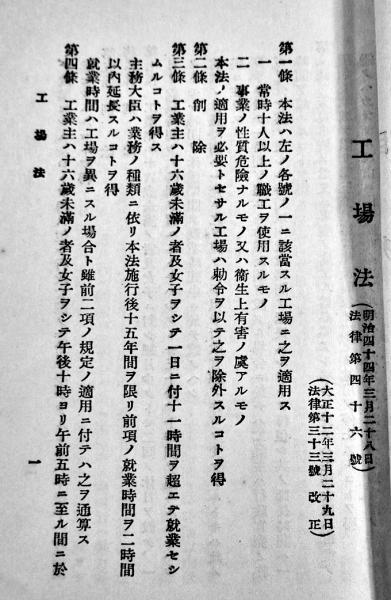 工場法
(明治四十四年三月二十八日)
(法律第四十六號)
(大正十二年三月二十九日)
(法律第三十三號改正)
第一條　本法ハ左ノ各號ノ一ニ該當スル工場ニ之ヲ適用ス
一　常時十人以上ノ職工ヲ使用スルモノ
二　事業ノ性質危險ナルモノ又ハ衞生上有害ノ虞アルモノ
本法ノ適用ヲ必要トセサル工場ハ勅令ヲ以テ之ヲ除外スルコトヲ得
第二條　削除
第三條　工業主ハ十六歲未滿ノ者及女子ヲシテ一日ニ付十一時間ヲ超エテ就業セシ
ムルコトヲ得ス
主務大臣ハ業務ノ種類ニ依リ本法施行後十五年間ヲ限リ前項ノ就業時間ヲ二時間
以內延長スルコトヲ得
就業時間ハ工場ヲ異ニスル場合ト雖前二項ノ規定ノ適用ニ付テハ之ヲ通算ス
第四條　工業主ハ十六歲未滿ノ者及女子ヲシテ午後十時ヨリ午前五時ニ至ル間ニ於
工場法
一